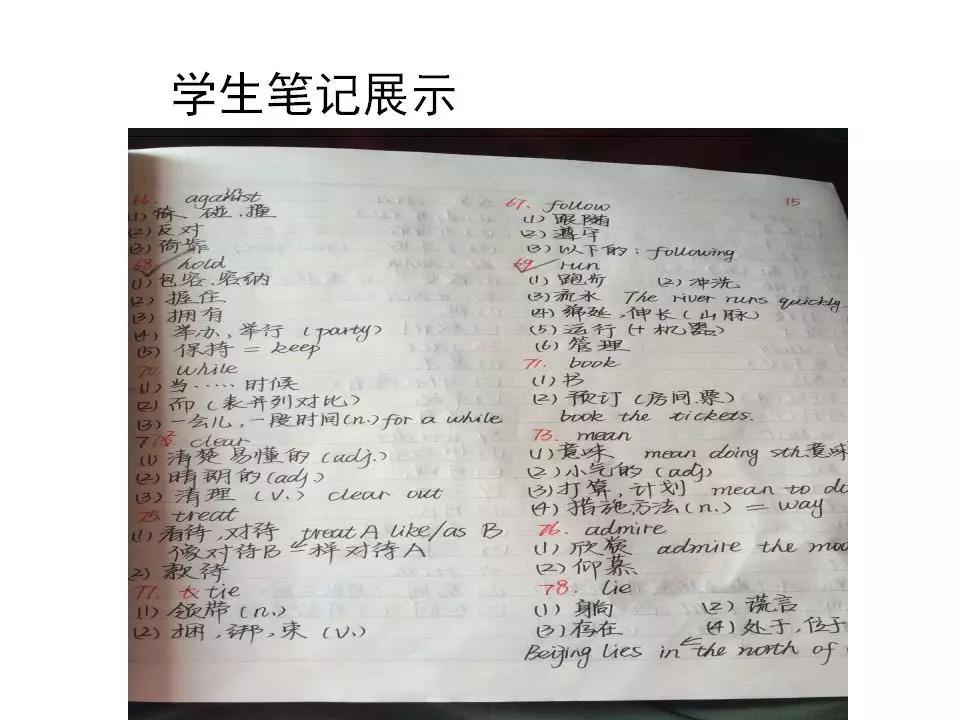 学生笔记展示
66. against
(1) 碰, 撞
(2) 反对
(3) 倚靠
68. hold
(1) 包容, 容纳
(2) 握住
(3) 拥有
(4) 举办, 举行 (party)
(5) 保持 = keep
70. while
(1) 当……时候
(2) 而 (表并列对比)
(3) 一会儿, 一段时间(n.) for a while
clear
(1) 清楚易懂的 (adj.)
(2) 晴朗的(adj.)
(3) 清理 (v.) clear out
75. treat
(1) 看待, 对待 treat A like/as B
像对待B一样对待A
(2) 款待
77. tie
(1) 领带 (n.)
(2) 捆, 绑, 束 (v.)
15
67. follow
(1) 跟随
(2) 遵守
(3) 以下的: following
69. run
(1) 跑步 (2) 冲洗
(3) 流水 The river runs quickly.
(4) 绵延, 伸长 (山脉)
(5) 运行 (+机器)
(6) 管理
71. book
(1) 书
(2) 预订 (房间.票)
book the tickets.
73. mean
(1) 意味 mean doing sth.意味
(2) 小气的 (adj)
(3) 打算, 计划 mean to do
(4) 措施方法 (n.) = way
76. admire
(1) 欣赏 admire the moo
(2) 仰慕
78. lie
(1) 躺 (2) 谎言
(3) 存在 (4) 处于, 位于
Beijing lies in the north of